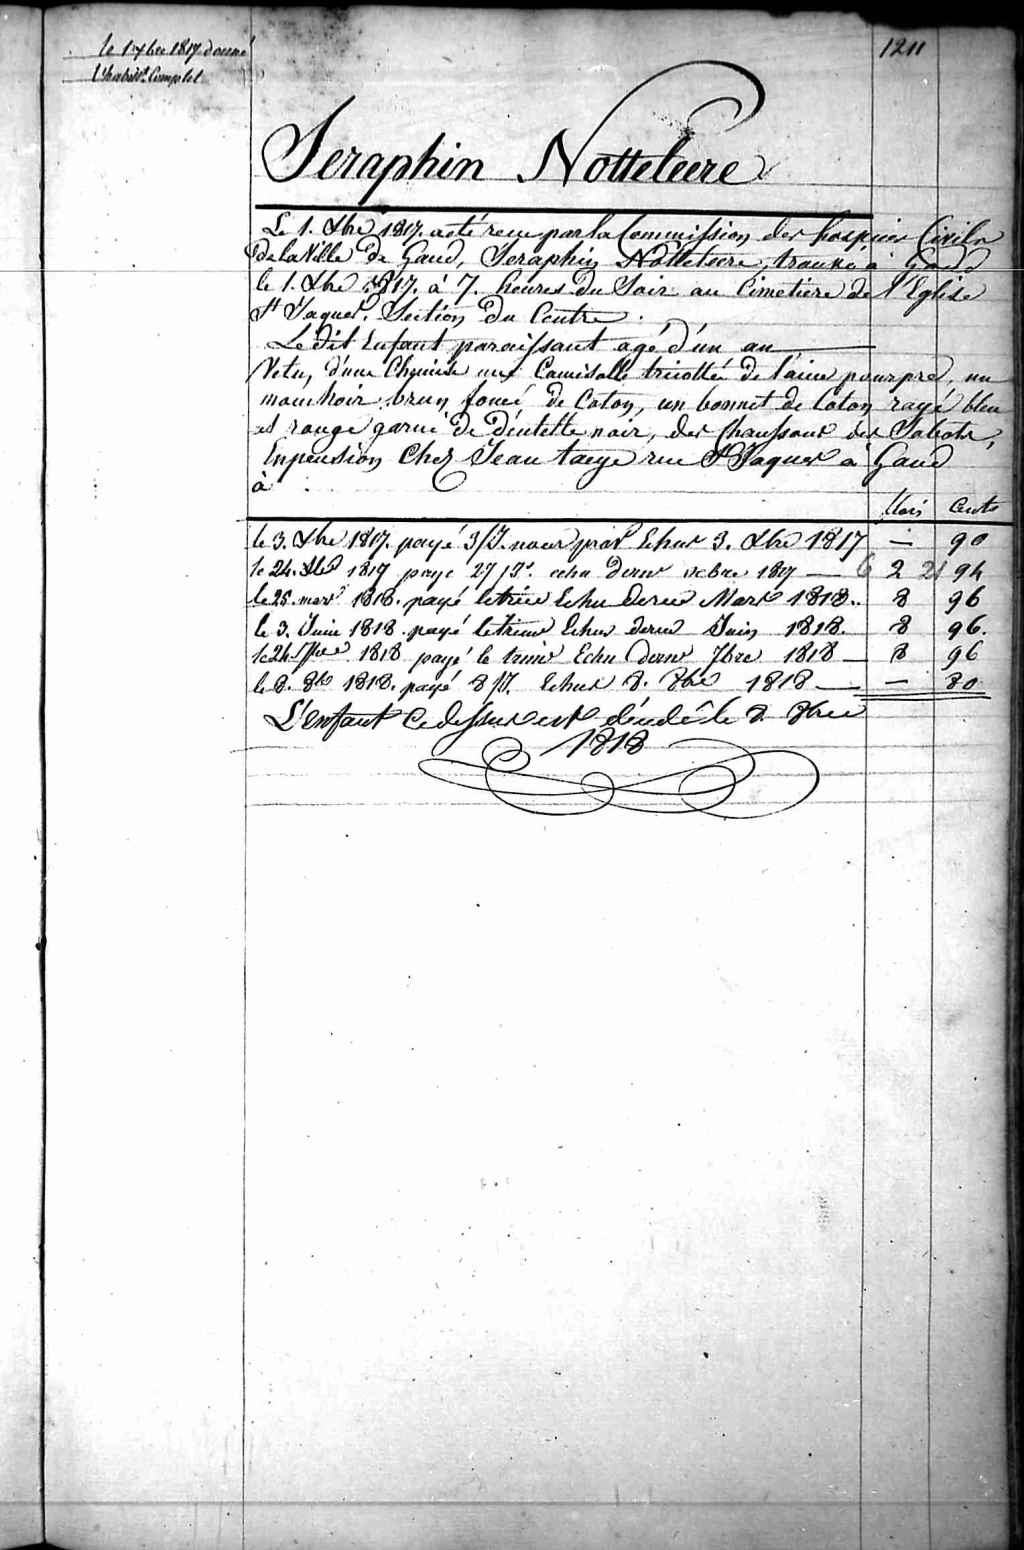 le 1 xbre 1817 donné
l'habill.t Complet
1211
Seraphin Notteleere
Le 1. Xbre 1817. a eté recu par la Commission des hospices Civils
de la Ville de Gand, Seraphin Notteleere, trouvé à Gand
le 1. Xbre 1817. à 7. heures du Soir au Cimetiere de l'Eglise
St Jaques. Section du Centre.
Le dit Enfant paraissant agé d'un an
Vetu, d'une Chemise une Camisolle tricottée de laine pourpre, un
mouchoir brun foncé de Coton, un bonnet de Coton rayé bleu
et rouge garni de dentelle noir, des Chaussons des Sabots,
Enpension Chez Jean taeye rue St Jaques à Gand
à
flors Cents
le 3. Xbre 1817. payé 3/J. Echus 3. Xbre 1817 — 90
le 24. Xbre 1817 payé 27/J.s echu dern.r xebre 1817 — 2 94
le 25. mars 1818. payé le trim Echu dernier Mars 1818. 8 96
le 3. Juin 1818. payé le trim Echu dernier Juin 1818. 8 96.
le 24. 7bre 1818 payé le trim Echu dern.r 7bre 1818 — 8 96
le 8. 8bre 1818. payé 8/J. Echus 8. 8bre 1818 — — 80
L'enfant Cedessus est décédé le 8. 8bre
1818